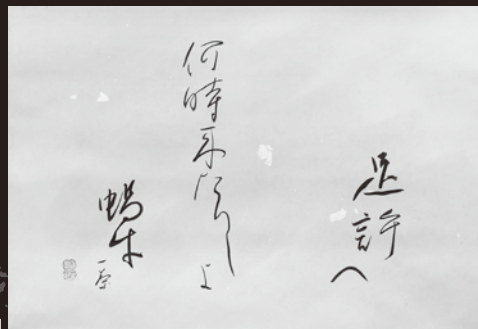 足許へ
何時来たりしよ
蝸牛
一茶